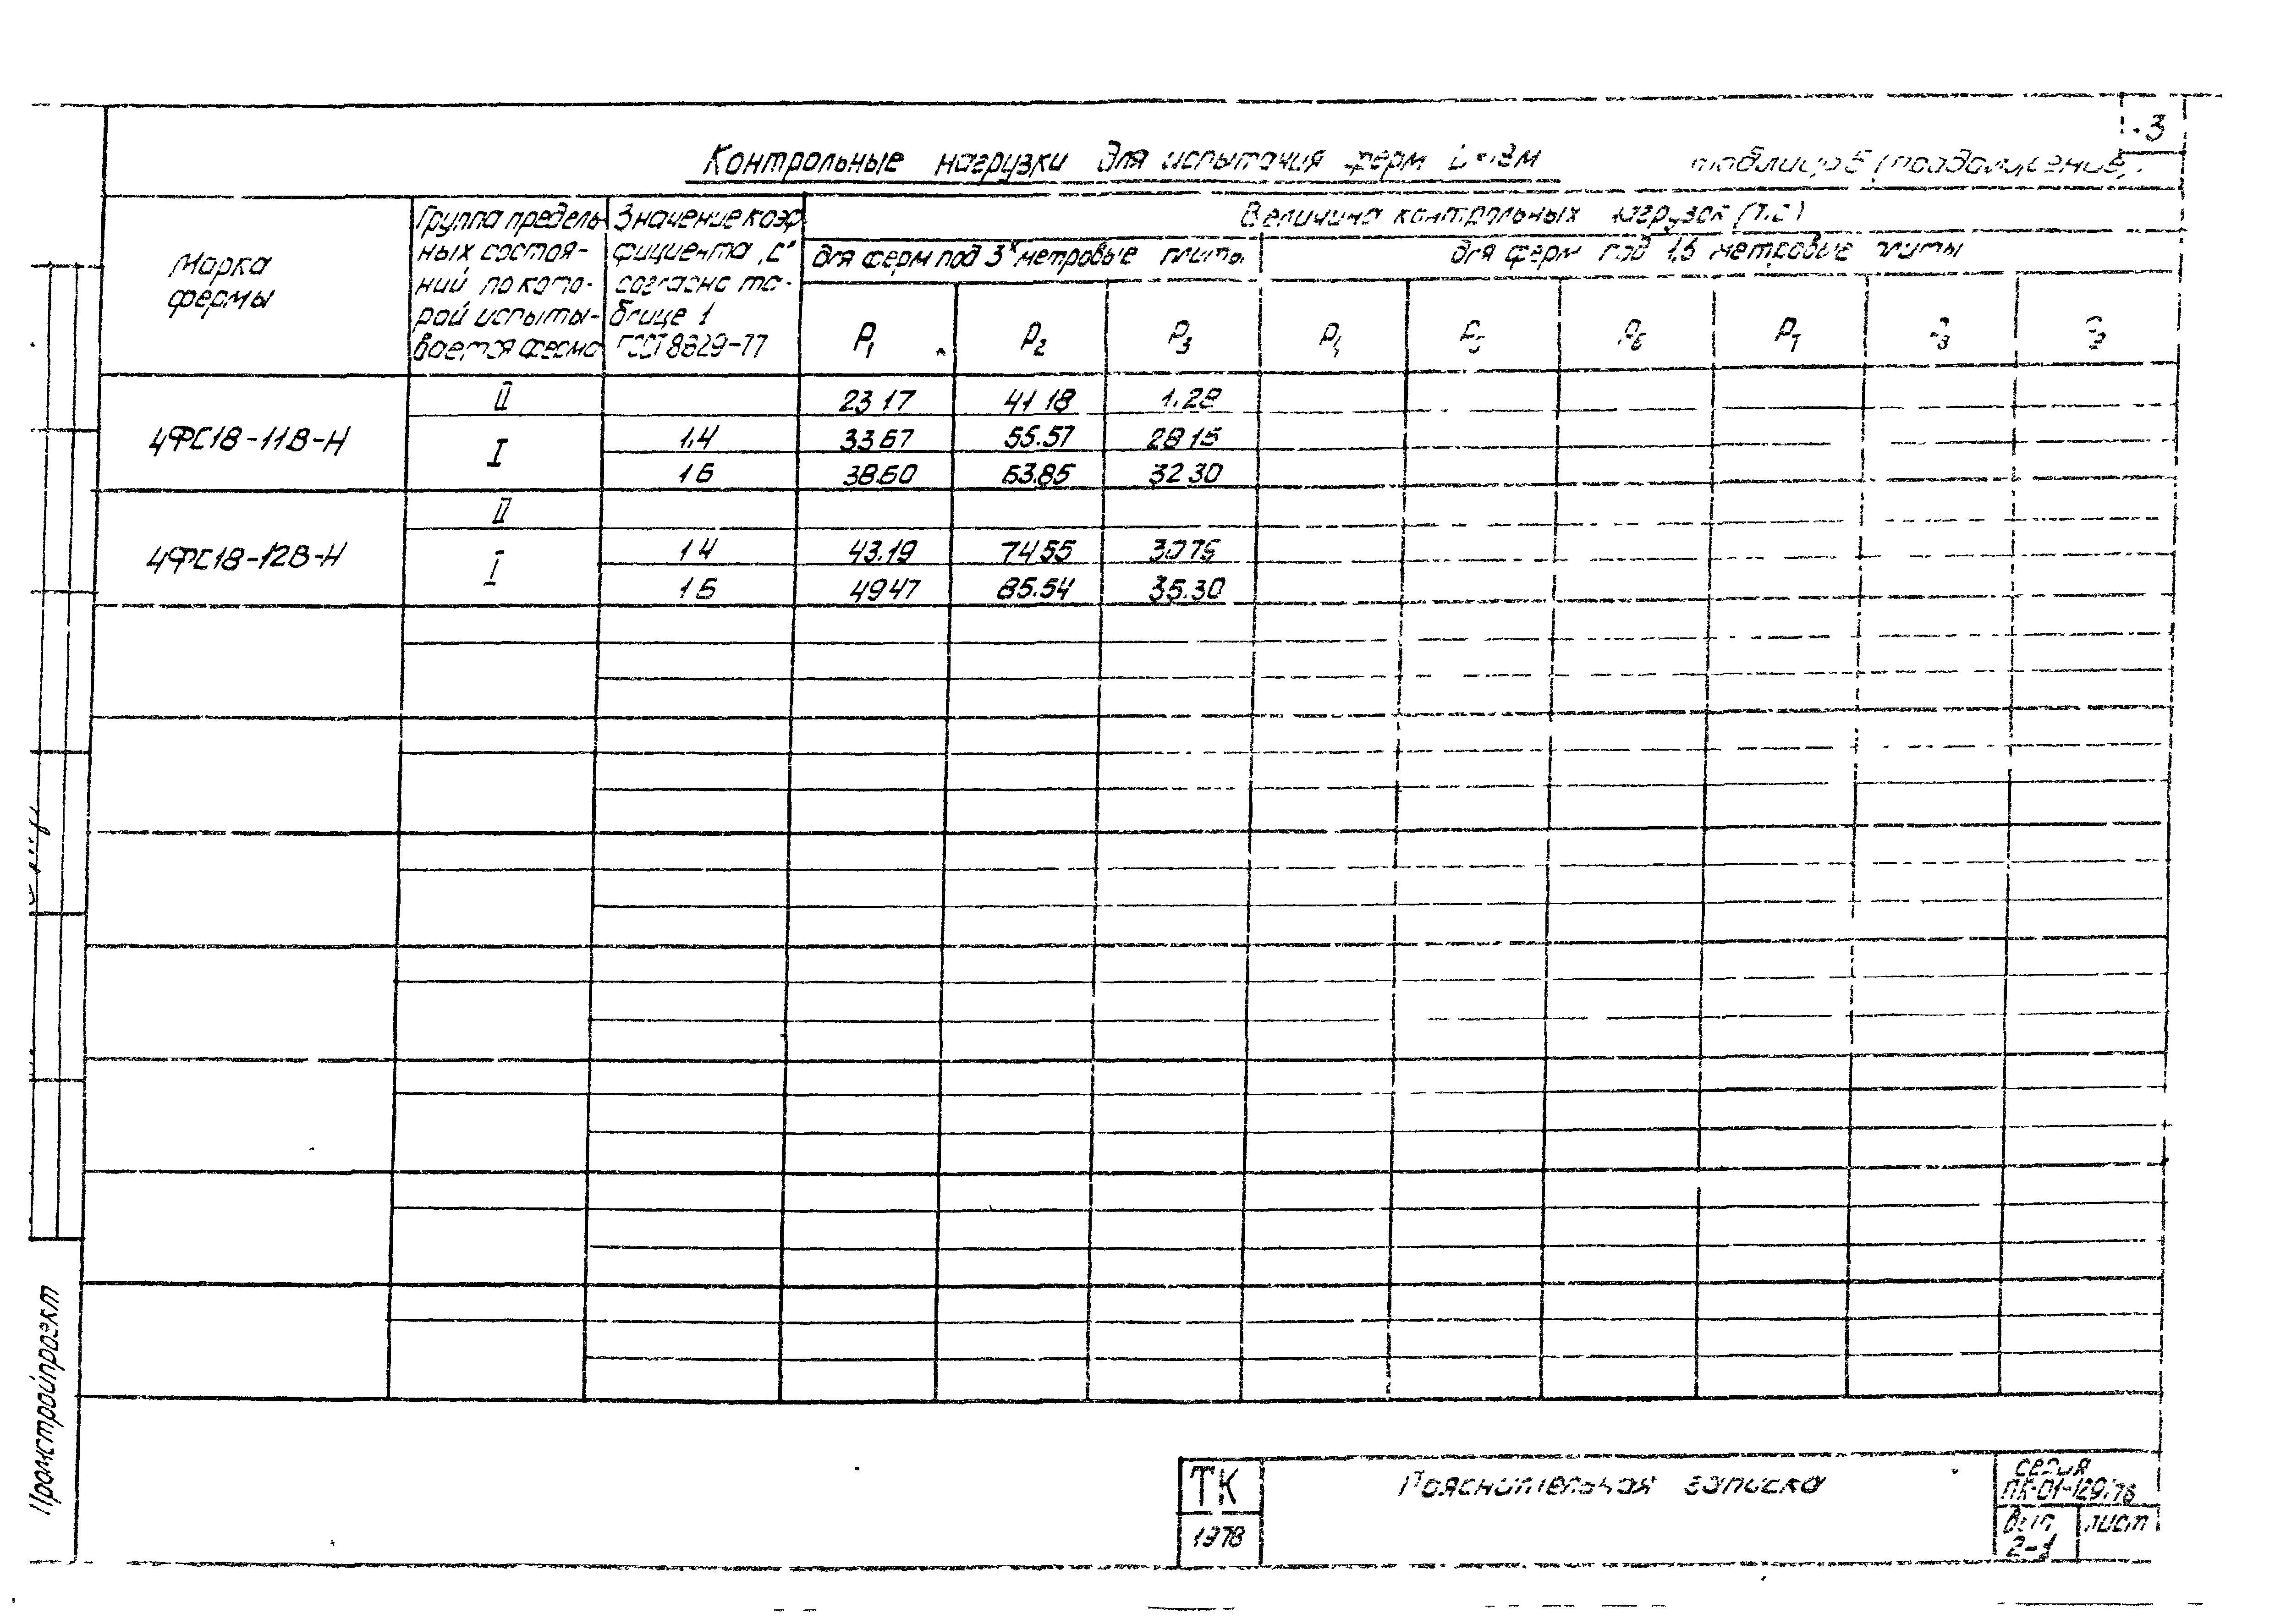 3
Контрольные нагрузки для испытания ферм L=18м
таблица 5 (продолжение)
Марка
фермы
Группа предель
ных состоя-
ний по кото-
рой испыты-
вается ферма
Значение коэф
фициента „С"
согласно та-
блице 1
ГОСТ 8829-77
Величина контрольных нагрузок (т.с)
для ферм под 3х метровые плиты
для ферм под 1,5 метровые плиты
P1 P2 P3 P4 P5 P6 P7 P8 P9
4ФС18-11В-Н
II 23.17 41.18
I 1.4 33.67 55.57 28.15
1.6 38.60 63.85 32.30
4ФС18-12В-Н
II
I 1.4 43.19 74.55 30.75
1.6 49.47 85.54 35.30
Промстройпроект
ТК
1978
Пояснительная записка
серия
ПК-01-129/78
Вып.
2-1
лист